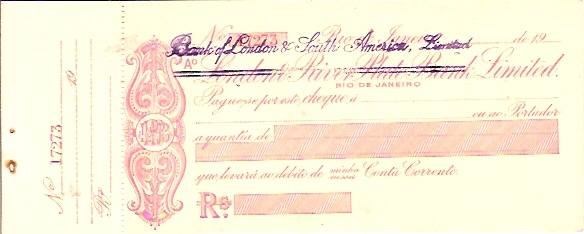 19
Nº 17273
Rio
Nº 17273 Rio Janeiro de 19
Bank of London & South America, Limited
Ao London & River Plate Bank Limited.
RIO DE JANEIRO
Pague-se por este cheque a
ou ao Portador
a quantia de
que levará ao debito de minha nossa Conta Corrente.
Rs